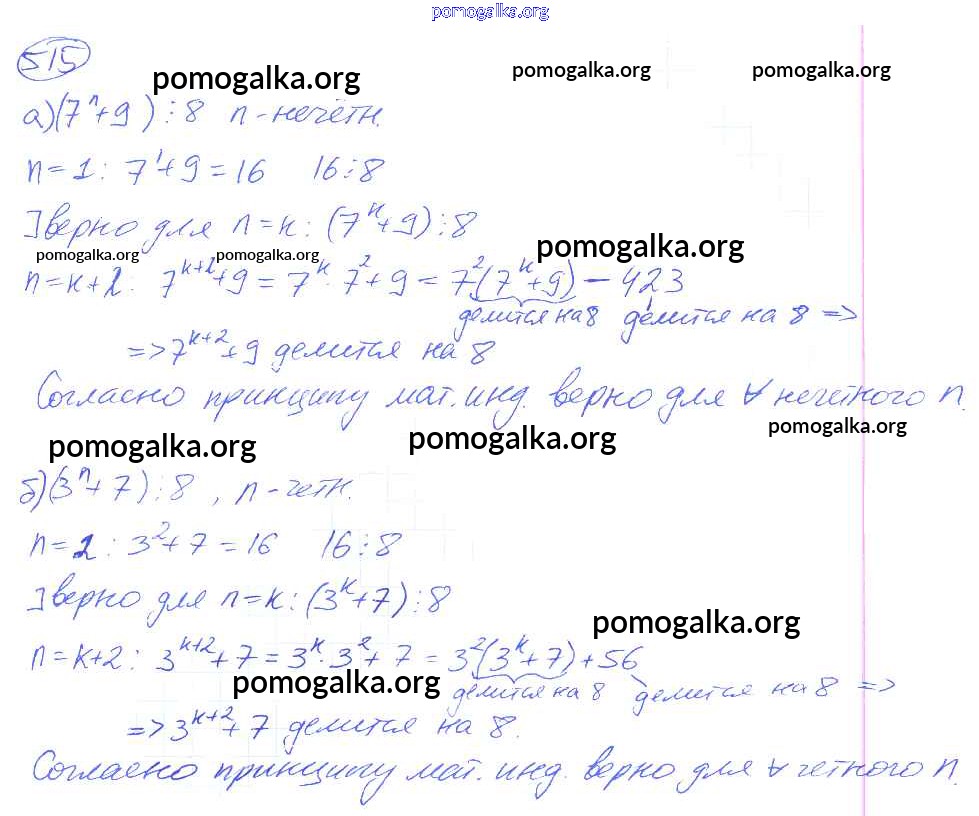 pomogalka.org
515
pomogalka.org pomogalka.org pomogalka.org
а) (7ⁿ+9) ⋮ 8 n - нечётн.
n = 1 : 7¹+9 = 16 16 ⋮ 8
] верно для n = k : (7ᵏ+9) ⋮ 8
pomogalka.org pomogalka.org pomogalka.org
n = k+2 : 7ᵏ⁺²+9 = 7ᵏ · 7²+9 = 7²(7ᵏ+9) - 423
делится на 8 делится на 8 =>
=> 7ᵏ⁺²+9 делится на 8
Согласно принципу мат. инд. верно для ∀ нечетного n.
pomogalka.org pomogalka.org pomogalka.org
б) (3ⁿ+7) ⋮ 8 , n - четн.
n = 2 : 3²+7 = 16 16 ⋮ 8
] верно для n = k : (3ᵏ+7) ⋮ 8
pomogalka.org
n = k+2 : 3ᵏ⁺²+7 = 3ᵏ · 3²+7 = 3²(3ᵏ+7) + 56
pomogalka.org
делится на 8 делится на 8 =>
=> 3ᵏ⁺²+7 делится на 8.
Согласно принципу мат. инд. верно для ∀ четного n.